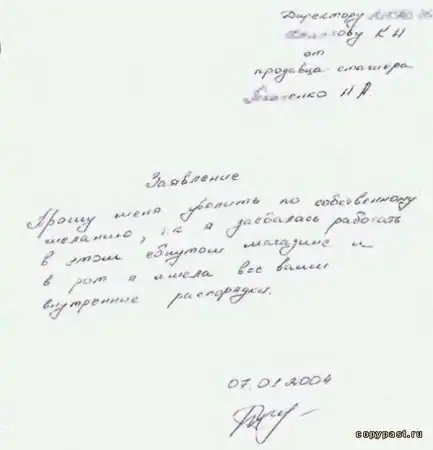 Директору
К Н
от
продавца-стажера
Н А.
Заявление
Прошу меня уволить по собственному
желанию, т.к я заебалась работать
в этом ебнутом магазине и
в рот я имела все ваши
внутренние распорядки.
07.01.2004
copypast.ru